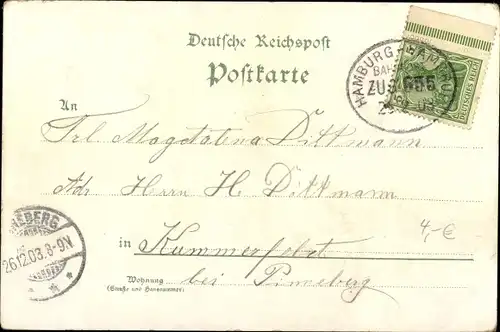 Deutsche Reichspost
Postkarte
An
Frl. Magdalena Dittmann
Adr Herrn H Dittmann
in Kummerfeld
bei Pinneberg
Wohnung
(Straße und Hausnummer)
HAMBURG
BAH
ZUG 655
DEUTSCHES REICH
NEBERG
26.12.03.8-9V
4,-€